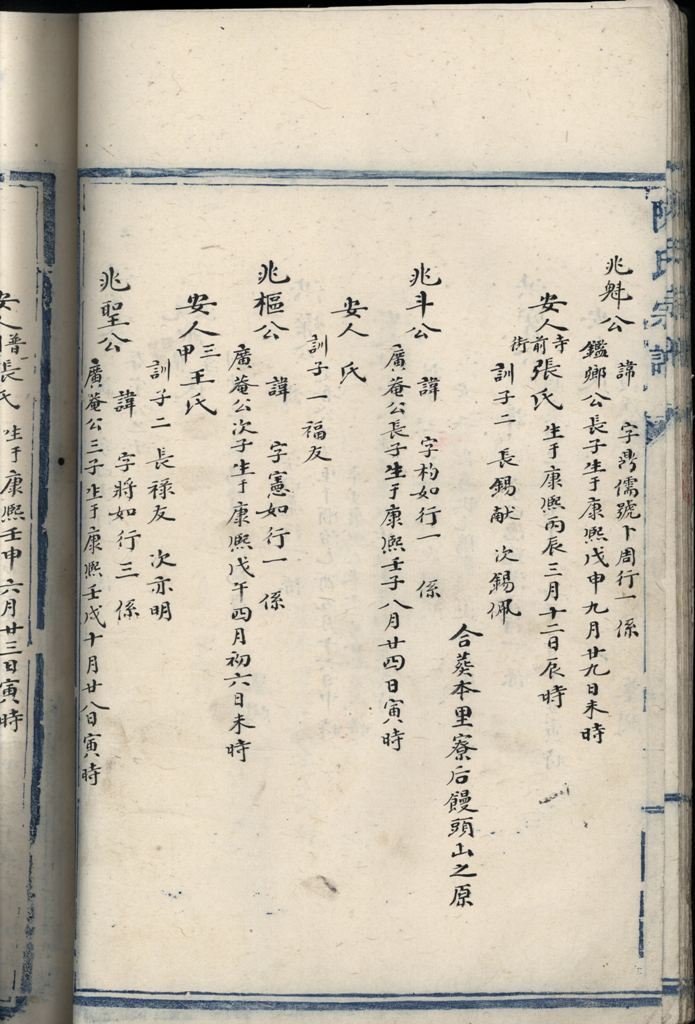 陳氏宗譜
兆魁公
諱 字鼎儒號卜周行一係
鑑卿公長子生于康熙戊申九月廿九日未時
安人寺前街張氏生于康熙丙辰三月十二日辰時
訓子二 長錫献 次錫佩
合葬本里寮后饅頭山之原
兆斗公
諱 字杓如行一 係
廣菴公長子生于康熙壬子八月廿四日寅時
安人 氏
訓子一福友
兆樞公
諱 字憲如行一 係
廣菴公次子生于康熙戊午四月初六日未時
安人三甲王氏
訓子二 長禄友 次亦明
兆聖公
諱 字將如行三 係
廣菴公三子生于康熙壬戌十月廿八日寅時
安人 張氏 生于康熙壬申六月廿三日寅時